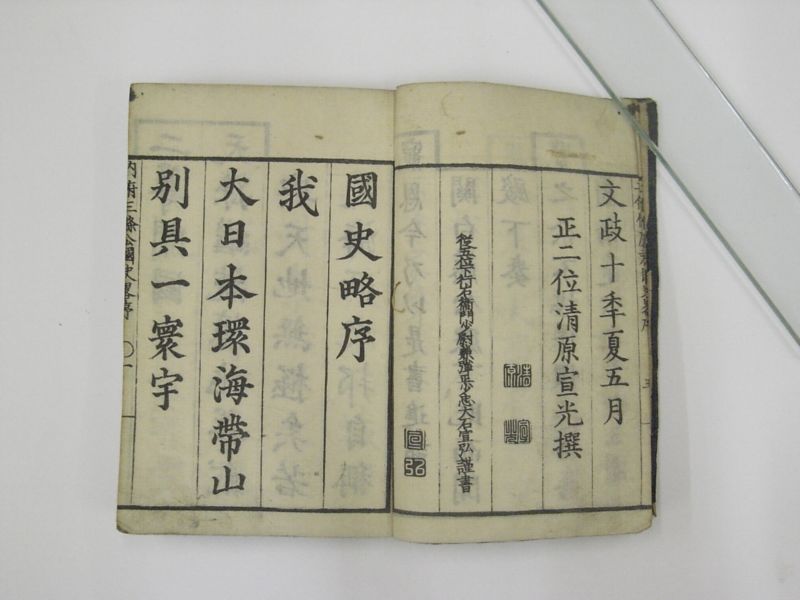 文政十季夏五月
正二位清原宣光撰
從五位下行右衞門少尉兼彈正少忠大石宣弘謹書
宣弘
國史略序
我
大日本環海帶山
別具一寰宇
內府三條公國史略序
〇一